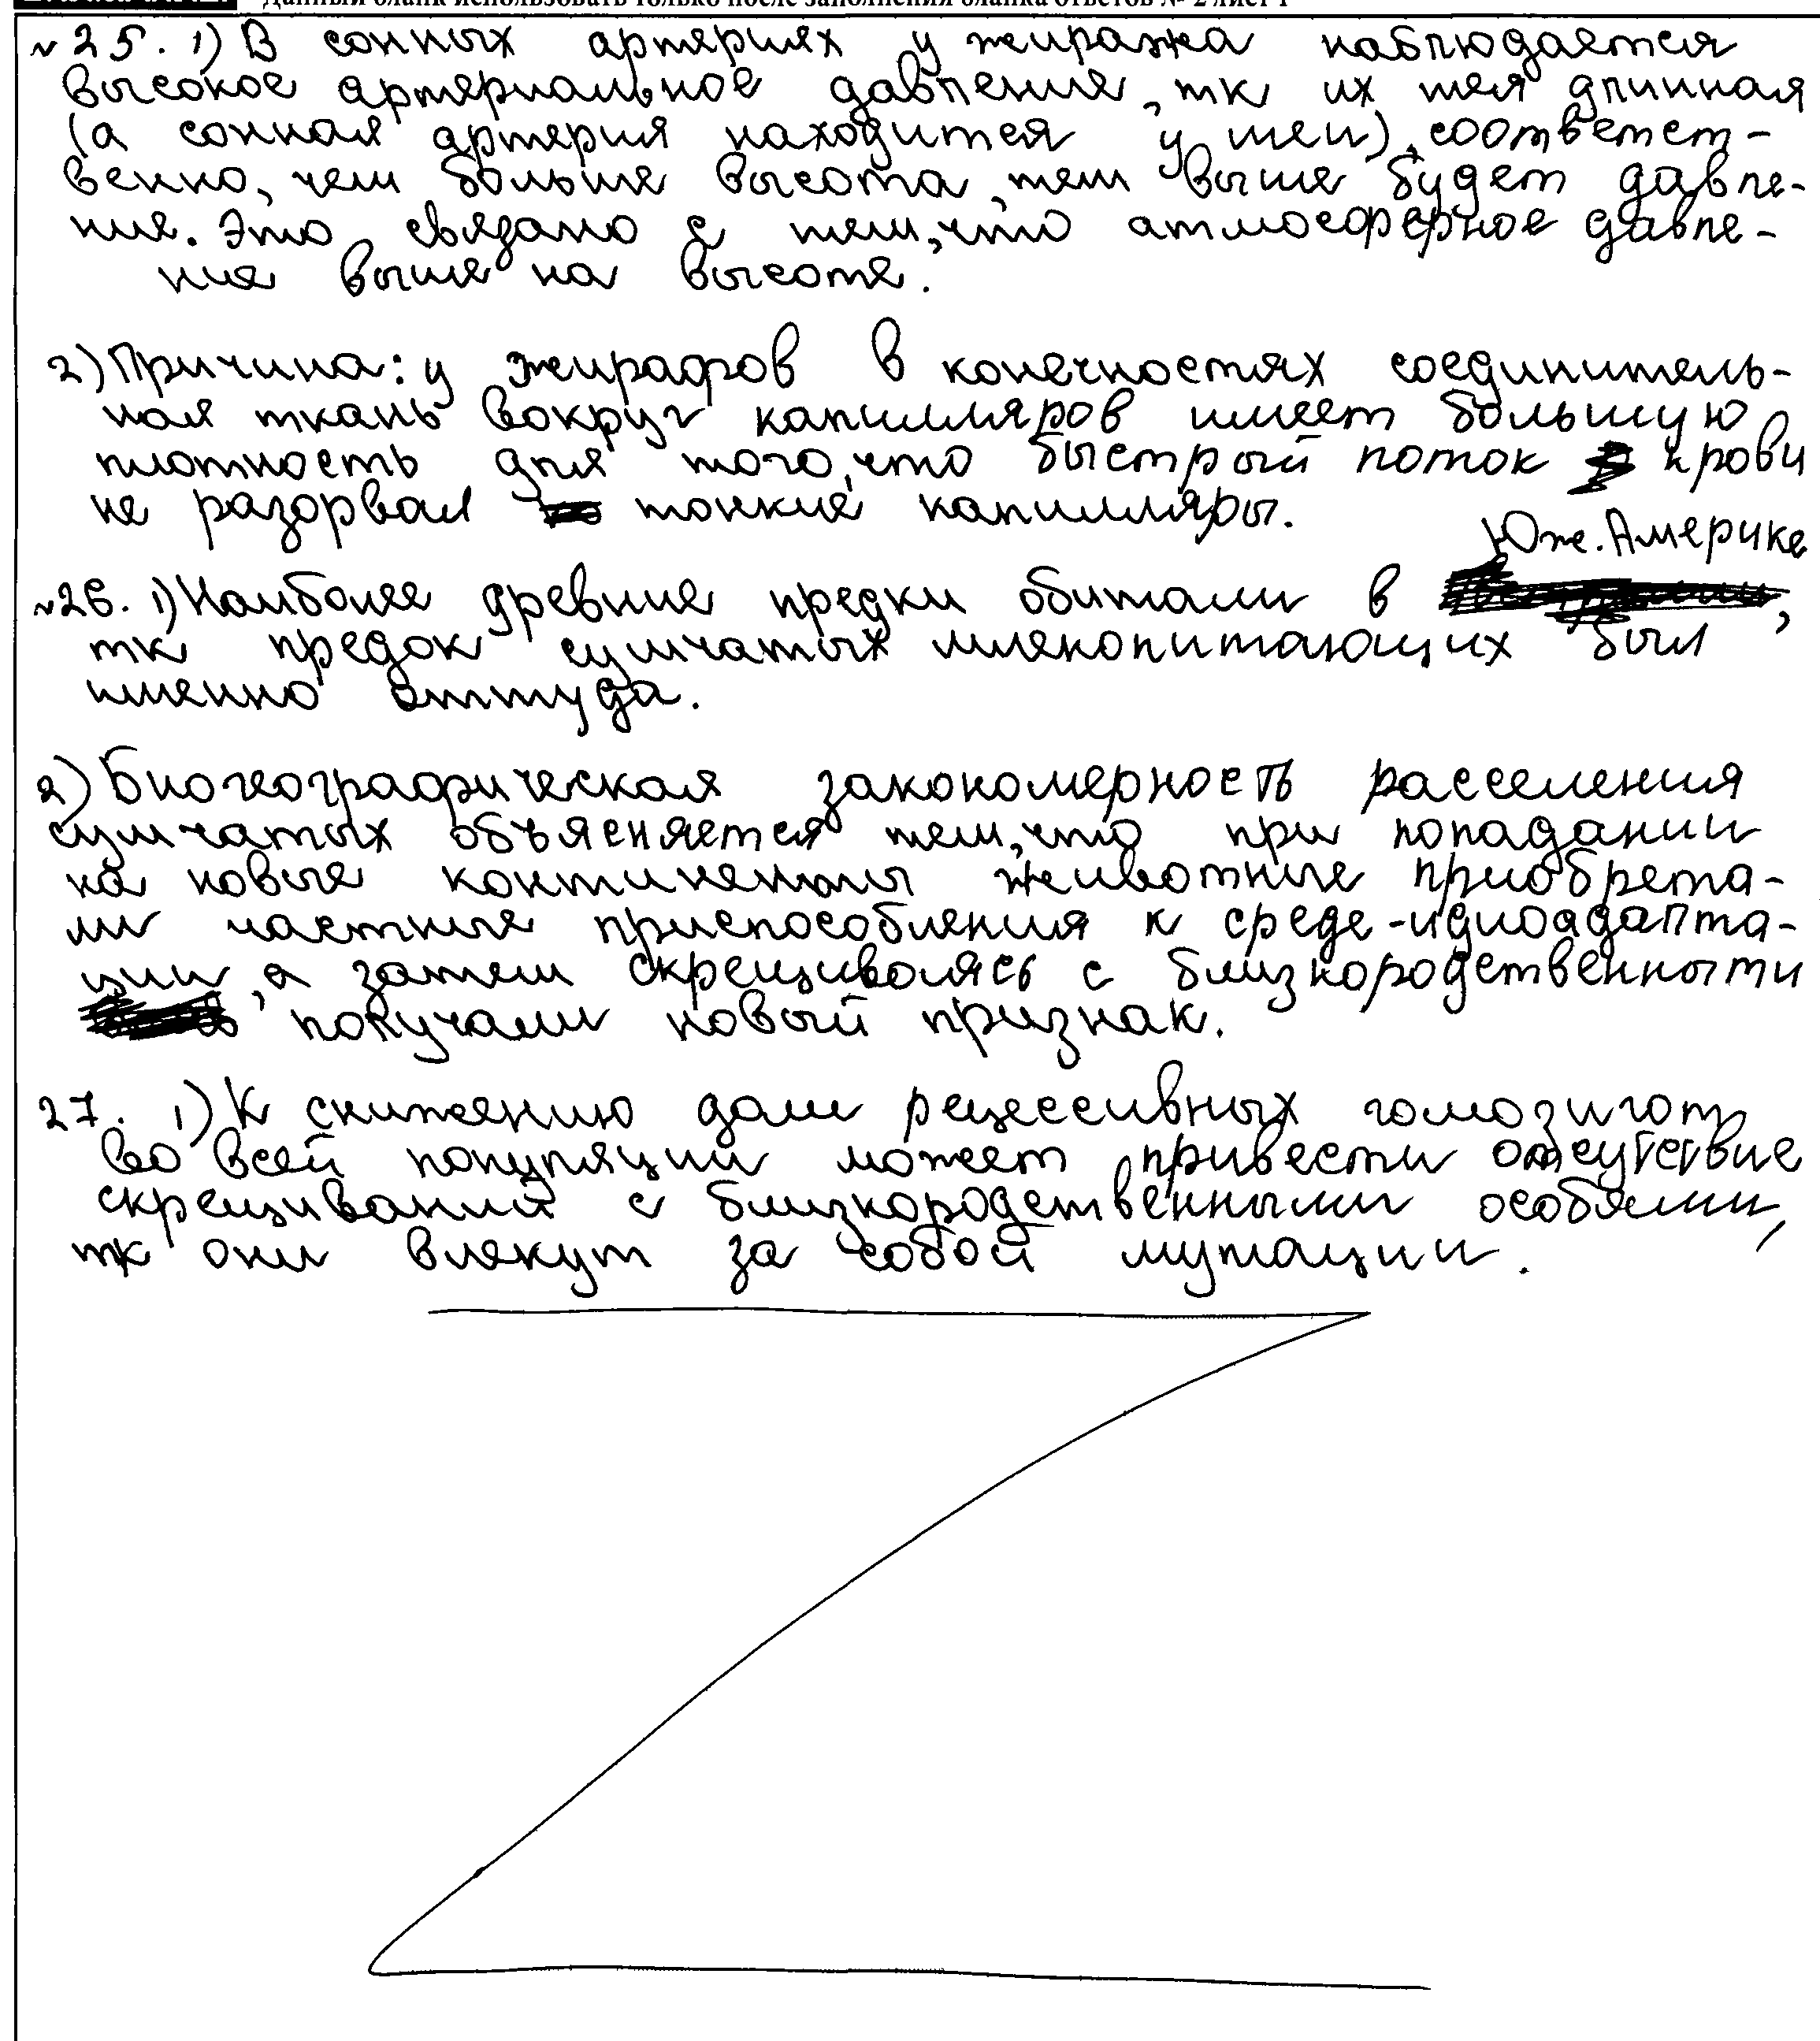 Данный бланк использовать только после заполнения бланка ответов № 2 лист 1
№25. 1) В сонных артериях у жиража наблюдается
высокое артериальное давление, тк их шея длинная
(а сонная артерия находится у шеи), соответст-
венно, чем больше высота, тем выше будет давле-
ние. Это связано с тем, что атмосферное давле-
ние выше на высоте.
2) Причина: у жирафов в конечностях соединитель-
ная ткань вокруг капилляров имеет большую
плотность для того, что быстрый поток крови
не разорвал тонкие капилляры.
Юж. Америке
№26. 1) Наиболее древние предки обитали в ,
тк предок сумчатых млекопитающих был
именно оттуда.
2) Биогеографическая закономерность расселения
сумчатых объясняется тем, что при попадании
на новые континенты животные приобрета-
ли частные приспособления к среде - идиоадапта-
ции, а затем скрещиваясь с близкородственными
получали новый признак.
27. 1) К снижению доли рецессивных гомозигот
во всей популяции может привести отсутствие
скрещиваний с близкородственными особями,
тк они влекут за собой мутации.